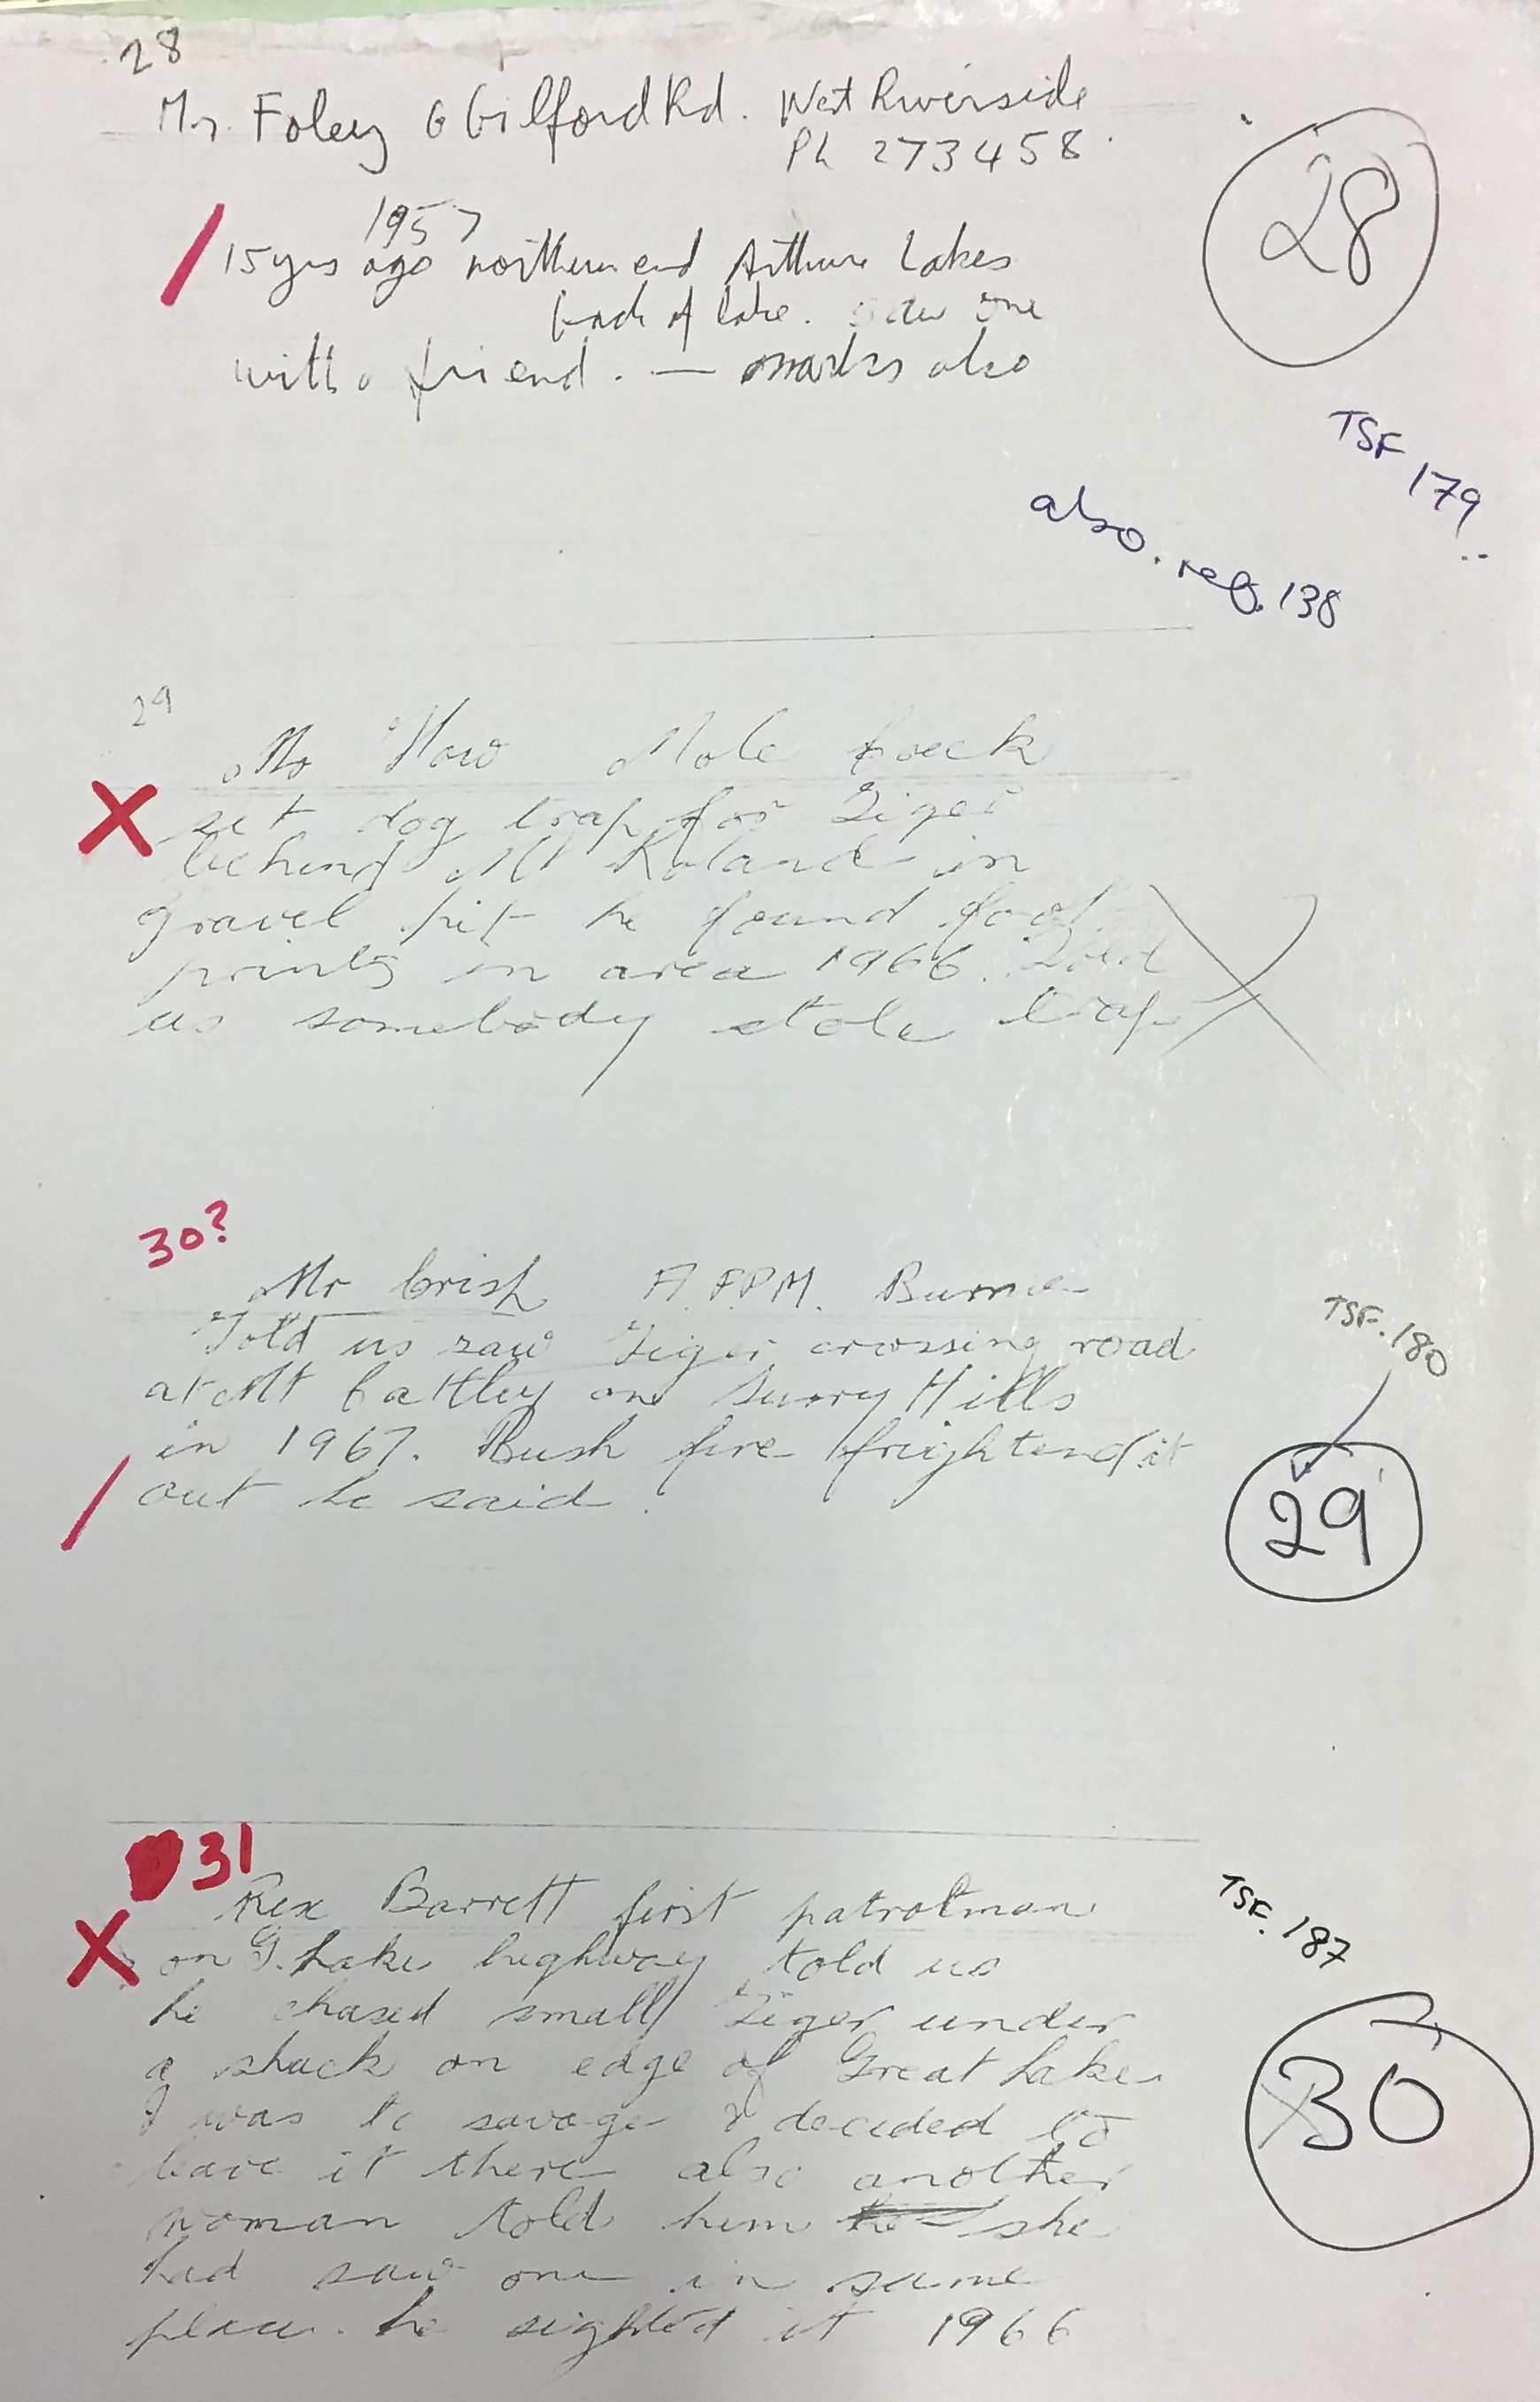 28
Mr. Foley 6 Gilford Rd. West Riverside
Ph 273458.
28
1957
15 yrs ago northern end Arthurs Lakes
back of lake. saw one
with a friend. — marks also
TSF 179
also. ref. 138
29
Mr How Mole Creek
set dog trap for Tiger
behind Mt Roland in
gravel pit he found foot
prints in area 1966. Told
us somebody stole trap
30?
Mr Crisp A.P.P.M. Burnie
Told us saw Tiger crossing road
at Mt Cattley on Surry Hills
in 1967. Bush fire frightend it
out he said.
TSF. 180
29
31
Rex Barrett first patrolman
on G. Lake highway told us
he chased small Tiger under
a shack on edge of Great Lake
I was to savage & decided to
leave it there also another
woman told him she
had saw one in same
place. he sighted it 1966
TSF. 187
30